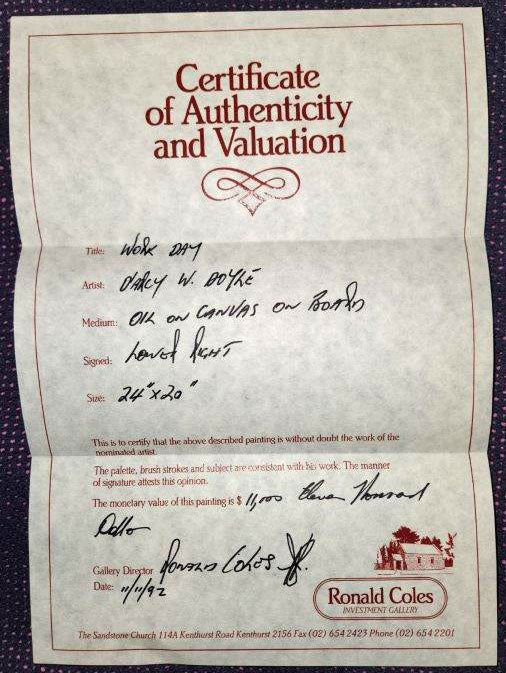 Certificate
of Authenticity
and Valuation
Title: WORK DAY
Artist: D'ARCY W. DOYLE
Medium: OIL ON CANVAS ON BOARD
Signed: LOWER RIGHT
Size: 24" x 20"
This is to certify that the above described painting is without doubt the work of the
nominated artist.
The palette, brush strokes and subject are consistent with his work. The manner
of signature attests this opinion.
The monetary value of this painting is $ 11,000 Eleven Thousand
Dollars
Gallery Director RONALD COLES
Date: 11/11/92
Ronald Coles
INVESTMENT GALLERY
The Sandstone Church 114A Kenthurst Road Kenthurst 2156 Fax (02) 654 2423 Phone (02) 654 2201